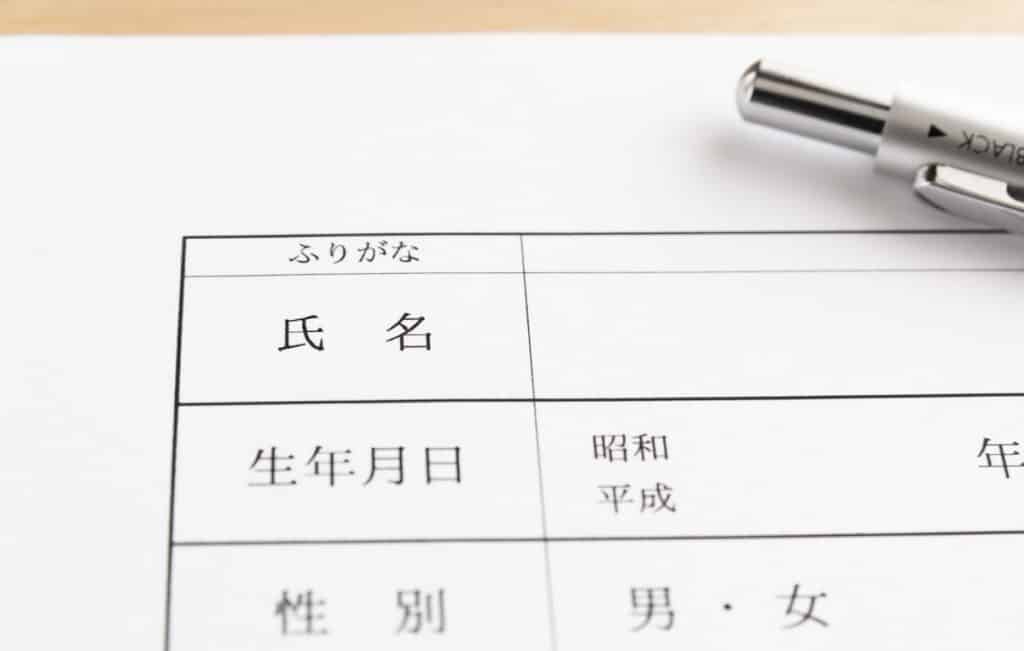 ▶ BLACK
ふりがな
氏 名
生年月日
昭和
平成
年
性 別
男・女